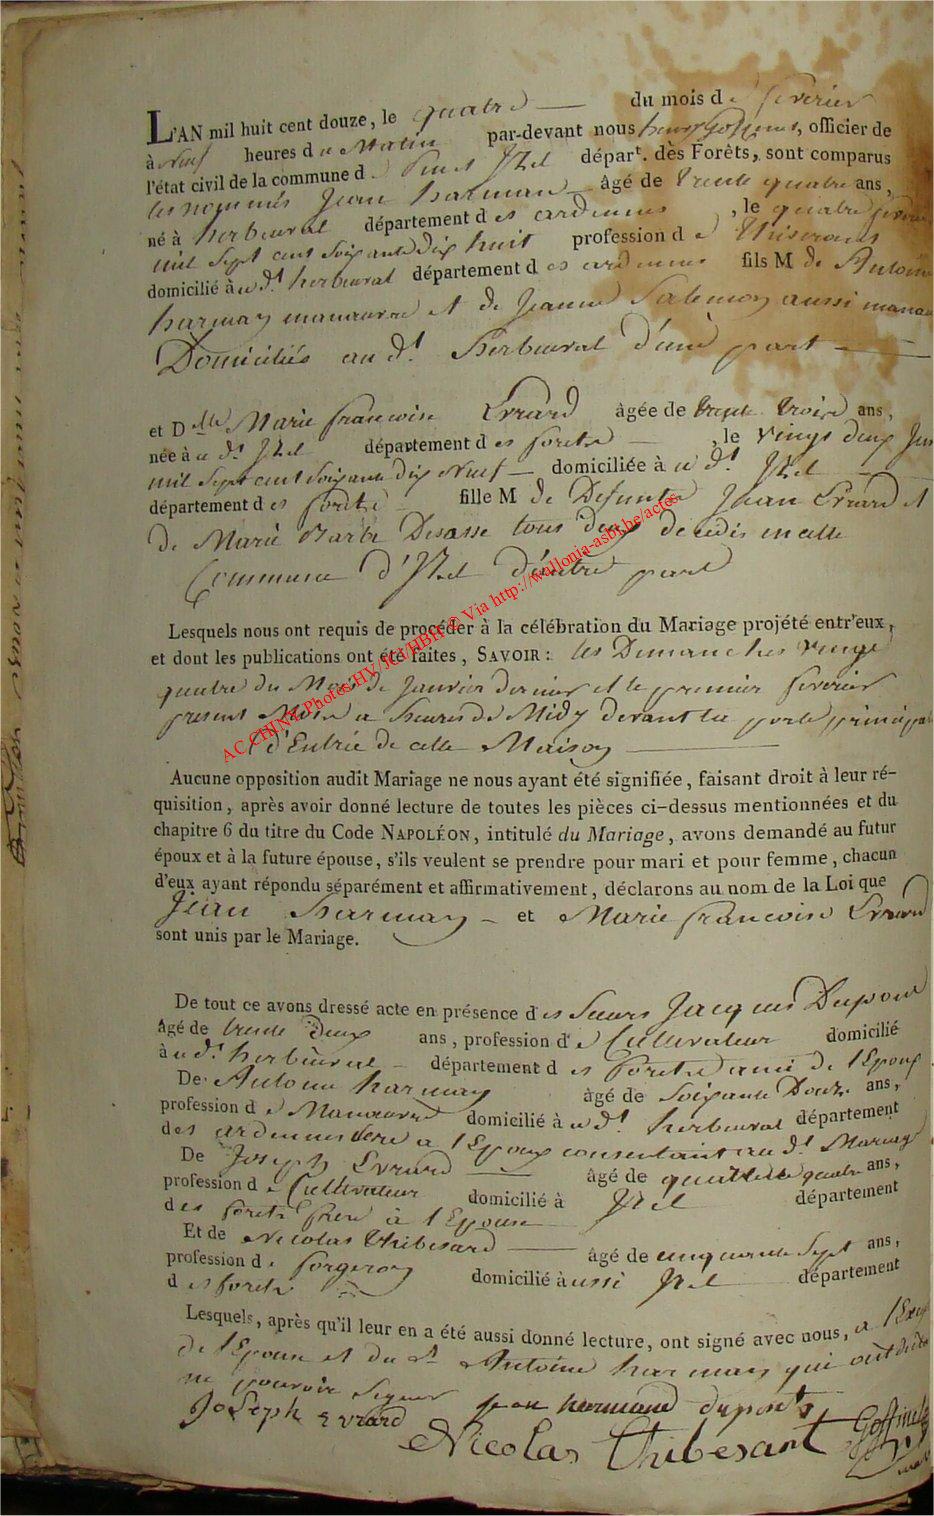 L'AN mil huit cent douze, le quatre du mois de fevrier
à Neuf heures du Matin par-devant nous henry Goffinet, officier de
l'état civil de la commune d Izel départ. dès Forêts, sont comparus
les nommés Jean harman âgé de trente quatre ans,
né à herbeuval département des ardennes, le quatre fevrier
mil sept cent soixante dix huit profession de Thiserans
domicilié à u dt. herbeuval département des ardennes fils M de Antoine
harmay manœuvre et de Jeanne Salemon aussi
Domiciliés au dt. Herbeuval d'une part
et Delle Marie francoise Evrard âgée de trente trois ans,
née à u dt. Izel département des foretes, le vingt deux
mil sept cent soixante dix Neuf domiciliée à u dt. Izel
département des foretes fille M de Defunte Jean Evrard et
de Marie Barbe Desasse tous deux décédés en cette
Commune d'Izel d'autre part
Lesquels nous ont requis de procéder à la célébration du Mariage projété entr'eux,
et dont les publications ont été faites, SAVOIR: les Dimanches vingt
quatre du Mois de Janvier dernier et le premier fevrier
present Mois a heures de Midy devant la porte principale
d'Entrée de cette Maison
AC CHINY Photos HV/JCJ/HBH © Via http://wallonia-asbt.be/actes
Aucune opposition audit Mariage ne nous ayant été signifiée, faisant droit à leur ré-
quisition, après avoir donné lecture de toutes les pièces ci-dessus mentionnées et du
chapitre 6 du titre du Code NAPOLÉON, intitulé du Mariage, avons demandé au futur
époux et à la future épouse, s'ils veulent se prendre pour mari et pour femme, chacun
d'eux ayant répondu séparément et affirmativement, déclarons au nom de la Loi que
Jean Harmay et Marie francoise Evrard
sont unis par le Mariage.
De tout ce avons dressé acte en présence des Sieurs Jacques Dupont
âgé de trente deux ans, profession de Cultivateur domicilié
à u dt. herbeuval département des foretes ami de l'Epoux
De Antoine harmay âgé de soixante Douze ans,
profession de Manœuvre domicilié à u dt. herbeuval département
des ardennes Pere a l'Epoux consentant au dt. Mariage
De Joseph Evrard âgé de quarante quatre ans,
profession de Cultivateur domicilié à Izel département
des foretes frere à l'Epouse
Et de Nicolas thibesard âgé de cinquante sept ans,
profession de forgeron domicilié à ussi Izel département
des foretes
Lesquels, après qu'il leur en a été aussi donné lecture, ont signé avec nous, a l'Exception
de l'Epouse et du dt. Antoine harmay qui ont
ne pouvoir signer
Joseph Evrard jean harmand dupont Goffinet
Nicolas thibesart